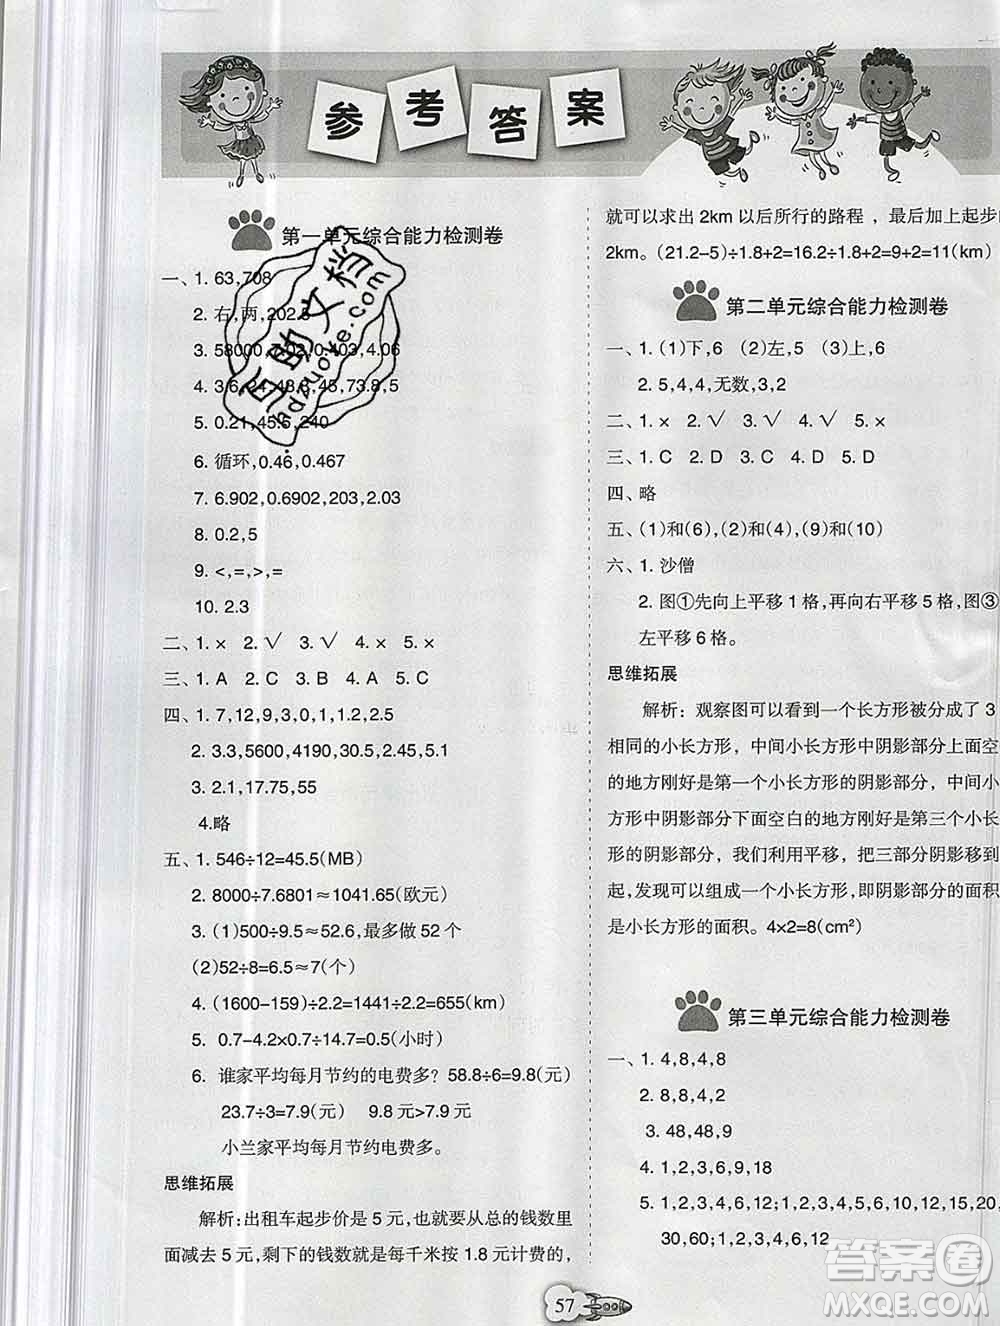 参考答案
第一单元综合能力检测卷
一、1. 63,708
2. 右,两,202.5
3. 58000,7.02,0.403,4.06
4. 3.6,24,48.8,45,73.8,5
5. 0.21,45.5,240
6. 循环,0.46,0.467
7. 6.902,0.6902,203,2.03
8. 0.2,5
9. <,=,>,=
10. 2.3
二、1. × 2. √ 3. √ 4. × 5. ×
三、1. A 2. C 3. B 4. A 5. C
四、1. 7,12,9,3,0,1,2,2.5
2. 3.3,5600,4190,30.5,2.4,5.1
3. 2.1,17.75,55
4.略
五、1. 546÷12=45.5(MB)
2. 8000÷7.6801≈1041.65(欧元)
3. (1)500÷9.5≈52.6,最多做52个
(2)52÷8=6.5≈7(个)
4. (1600-159)÷2.2=1441÷2.2=655(km)
5. 0.7-4.2×0.7÷14.7=0.5(小时)
6. 谁家平均每月节约的电费多? 58.8÷6=9.8(元)
23.7÷3=7.9(元) 9.8元>7.9元
小兰家平均每月节约电费多。
思维拓展
解析:出租车起步价是5元,也就要从总的钱数里
面减去5元,剩下的钱数就是每千米按1.8元计费的,
就可以求出2km以后所行的路程，最后加上起步的
2km。(21.2-5)÷1.8+2=16.2÷1.8+2=9+2=11(km)
第二单元综合能力检测卷
一、1. (1)下,6 (2)左,5 (3)上,6
2. 5,4,4,无数,3,2
二、1. × 2. √ 3. √ 4. √ 5. ×
三、1. C 2. C 3. D 4. A 5. D
四、略
五、(1)和(6),(2)和(4),(9)和(10)
六、1. 沙僧
2. 图①先向上平移1格,再向右平移5格,图③
左平移6格。
思维拓展
解析:观察图可以看到一个长方形被分成了3
相同的小长方形，中间小长方形中阴影部分上面空
的地方刚好是第一个小长方形的阴影部分，中间小
方形中阴影部分下面空白的地方刚好是第三个小长
形的阴影部分，我们利用平移，把三部分阴影合在
起,发现可以组成一个小长方形,即阴影部分的面积
是小长方形的面积。4×2=8(cm²)
第三单元综合能力检测卷
一、1. 4,8,4,8
2. 8,8,4,2
3. 48,48,9
4. 1,2,3,6,9,18
5. 1,2,3,4,6,12;1,2,3,4,5,6,10,12,15,20,
30,60;1,2,3,4,6,12
57
百助文档
ndzuoke.com
答案圈
MXQE.COM